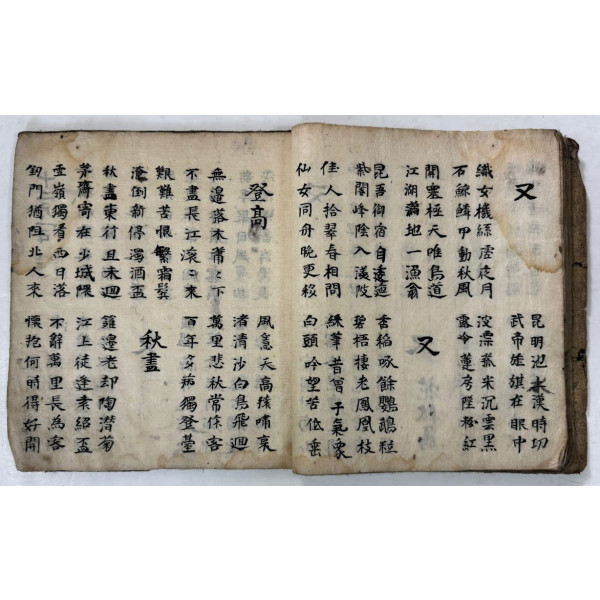 又
昆明池水漢時功
武帝旌旗在眼中
織女機絲虛夜月
波漂菰米沉雲黑
石鯨鱗甲動秋風
露冷蓮房墜粉紅
關塞極天唯鳥道
江湖滿地一漁翁
又
昆吾御宿自逶迤
香稻啄餘鸚鵡粒
紫閣峰陰入渼陂
碧梧棲老鳳凰枝
佳人拾翠春相問
綵筆昔曾干氣象
仙女同舟晚更移
白頭吟望苦低垂
登高
風急天高猿嘯哀
渚清沙白鳥飛迴
無邊落木蕭々下
萬里悲秋常作客
不盡長江滾々來
百年多病獨登臺
艱難苦恨繁霜鬢
潦倒新停濁酒盃
秋盡
秋盡東行且未迴
籬邊老却陶潛菊
茅齋寄在少城隈
江上徒逢袁紹盃
雪嶺獨看西日落
不辭萬里長為客
劒門猶阻北人來
懷抱何時得好開